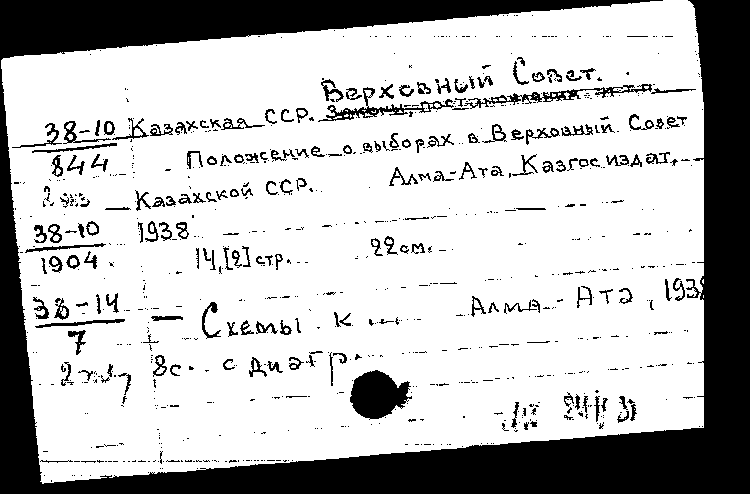 Верховный Совет.
38-10 Казахская ССР. Законы, постановления и т.п.
844 Положение о выборах в Верховный Совет
2 экз Казахской ССР. Алма-Ата, Казгосиздат,
38-10 1938
1904. 14,[2]стр. 22 см.
38-14 — Схемы к ... Алма-Ата, 1938
7
8с. с диагр.